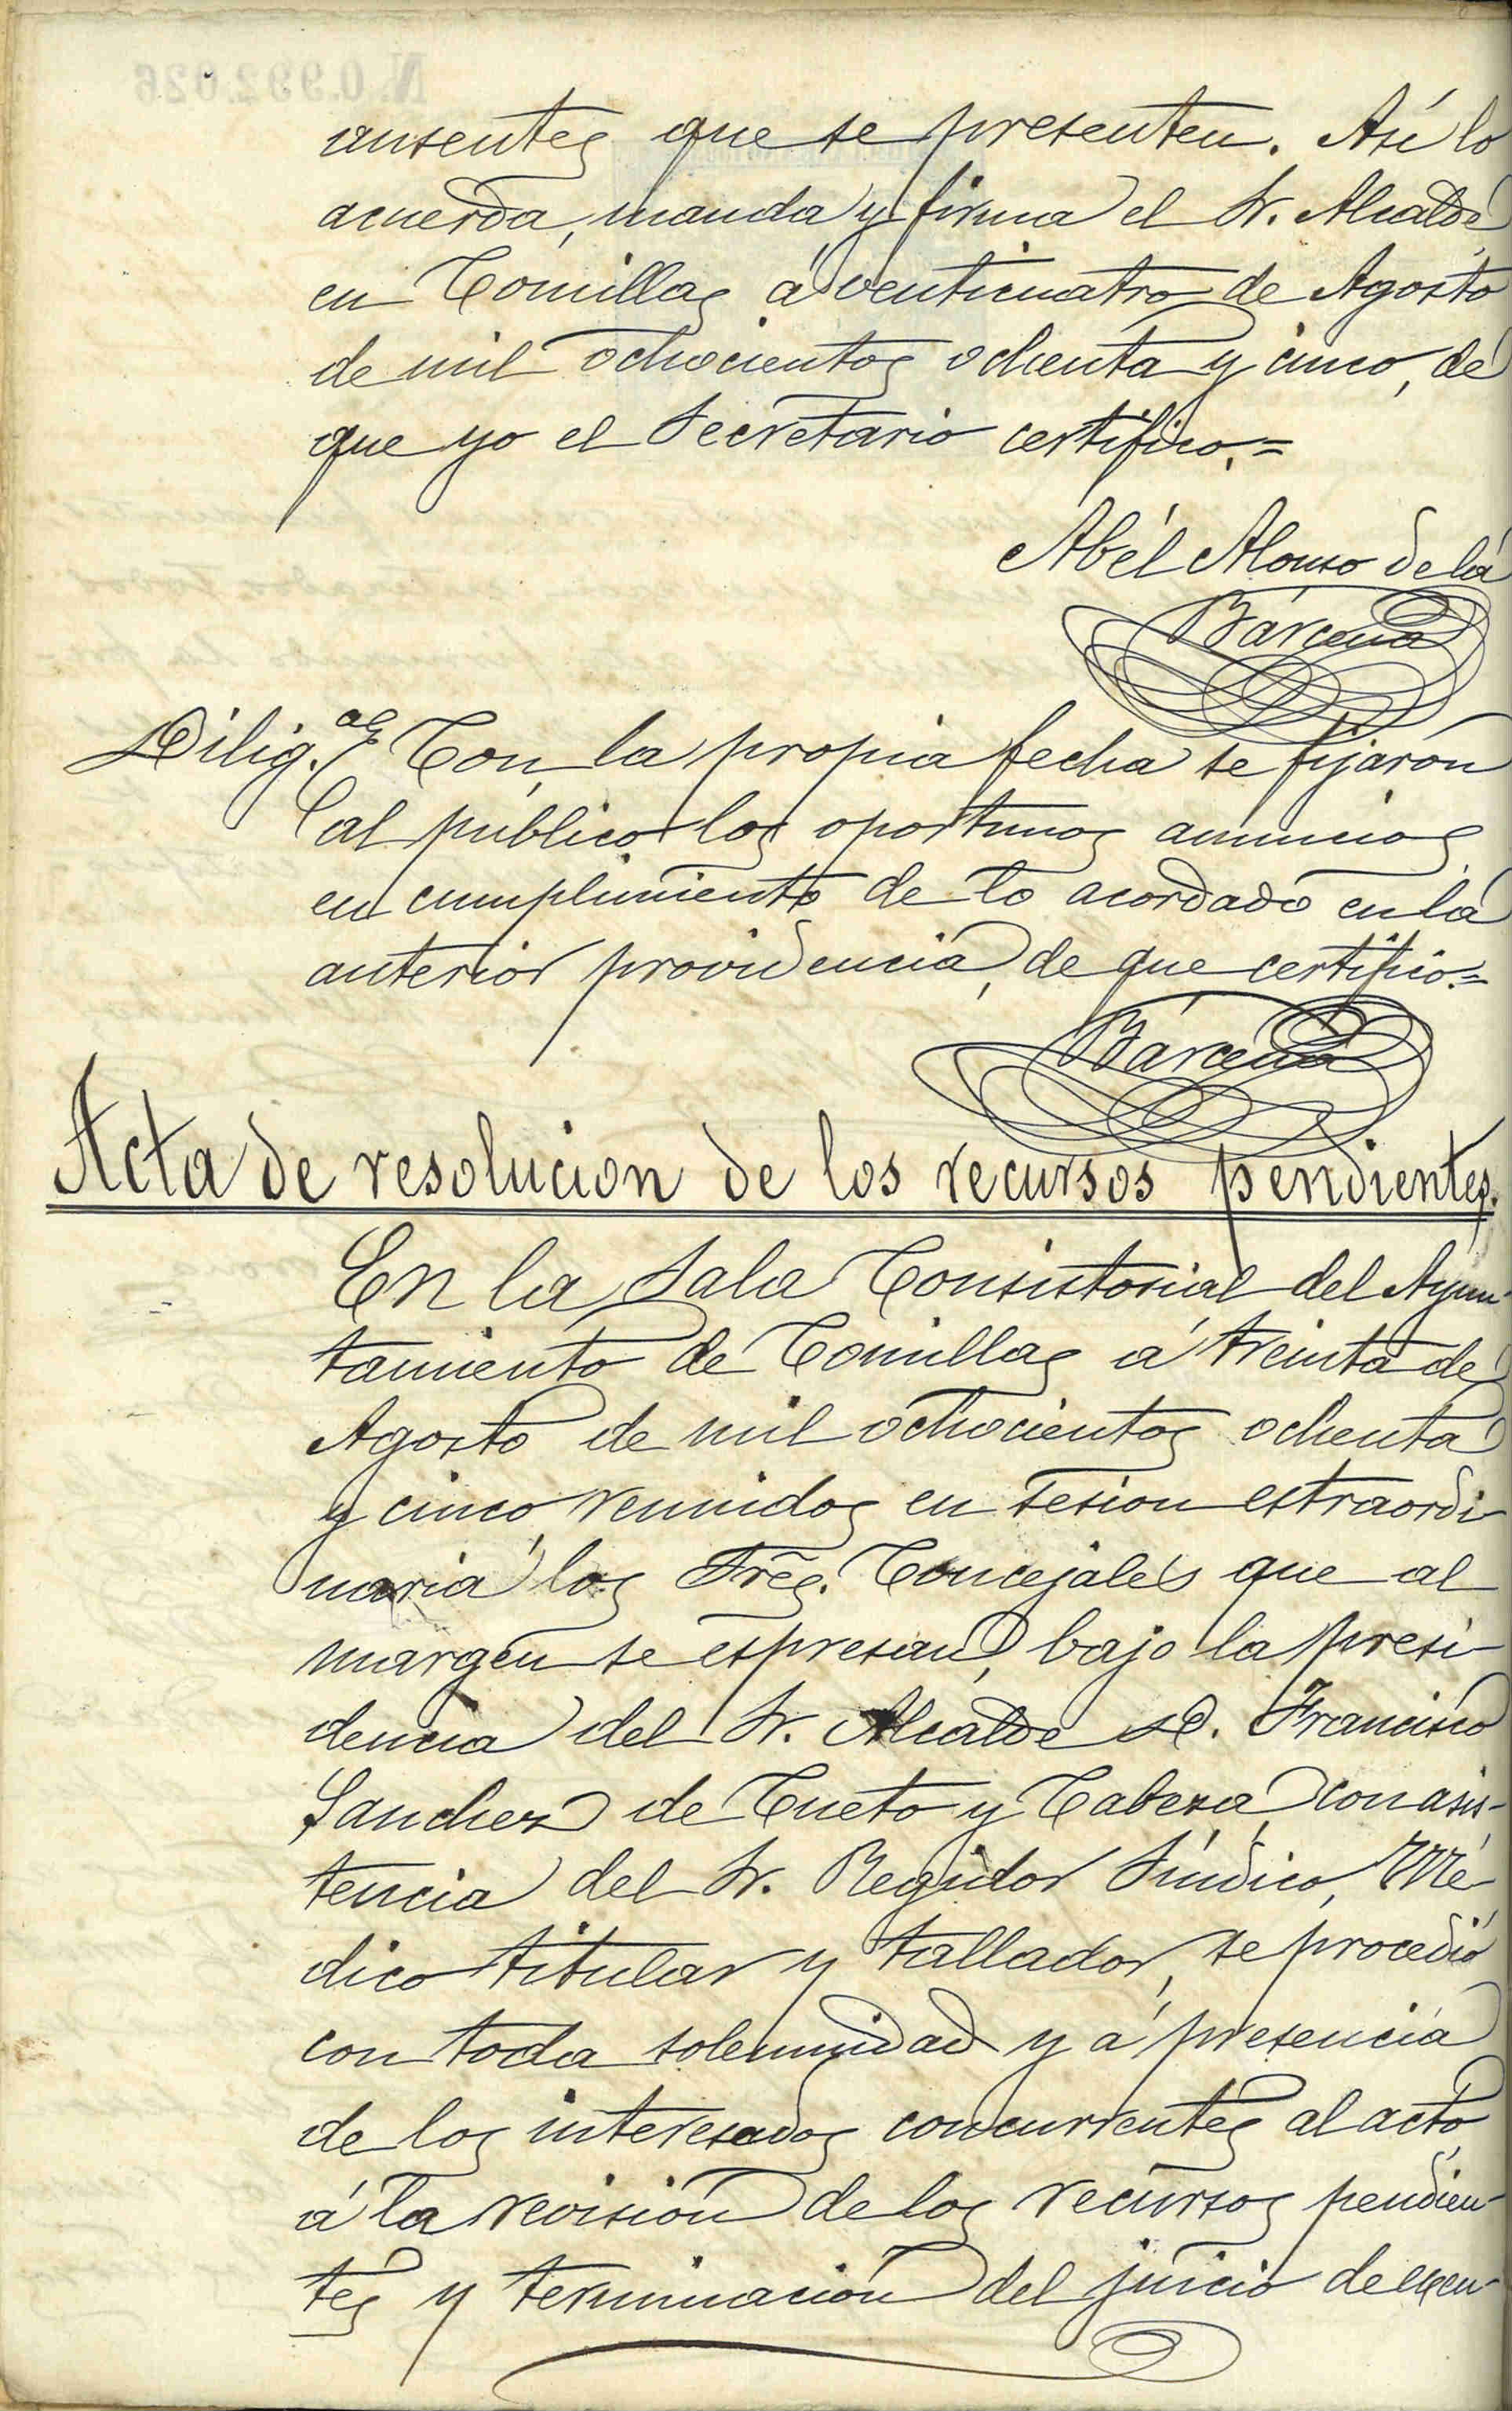 ausentes que se presenten. Así lo
acuerda, manda y firma el Sr. Alcalde
en Comillas á venticuatro de Agosto
de mil ochocientos ochenta y cinco, de
que yo el Secretario certifico.=
Abél Alonso de la
Bárcena
Dilig.ª Con la propia fecha se fijarón
al público los oportunos anuncios
en cumplimiento de lo acordado en la
anterior providencia, de que certifico.=
Bárcena
Acta de resolucion de los recursos pendientes.
En la Sala Consistorial del Ayun-
tamiento de Comillas á treinta de
Agosto de mil ochocientos ochenta
y cinco, reunidos en sesion estraordi-
naria los Sres. Concejales que al
margen se espresan, bajo la presi-
dencia del Sr. Alcalde D. Francisco
Sanchez de Cueto y Cabeza, con asis-
tencia del Sr. Regidor Síndico, Mé-
dico titular y tallador, se procedió
con toda solemnidad y á presencia
de los interesados concurrentes al acto
á la revisión de los recursos pendien-
tes y terminación del juicio de exen-
N. 0.992.026